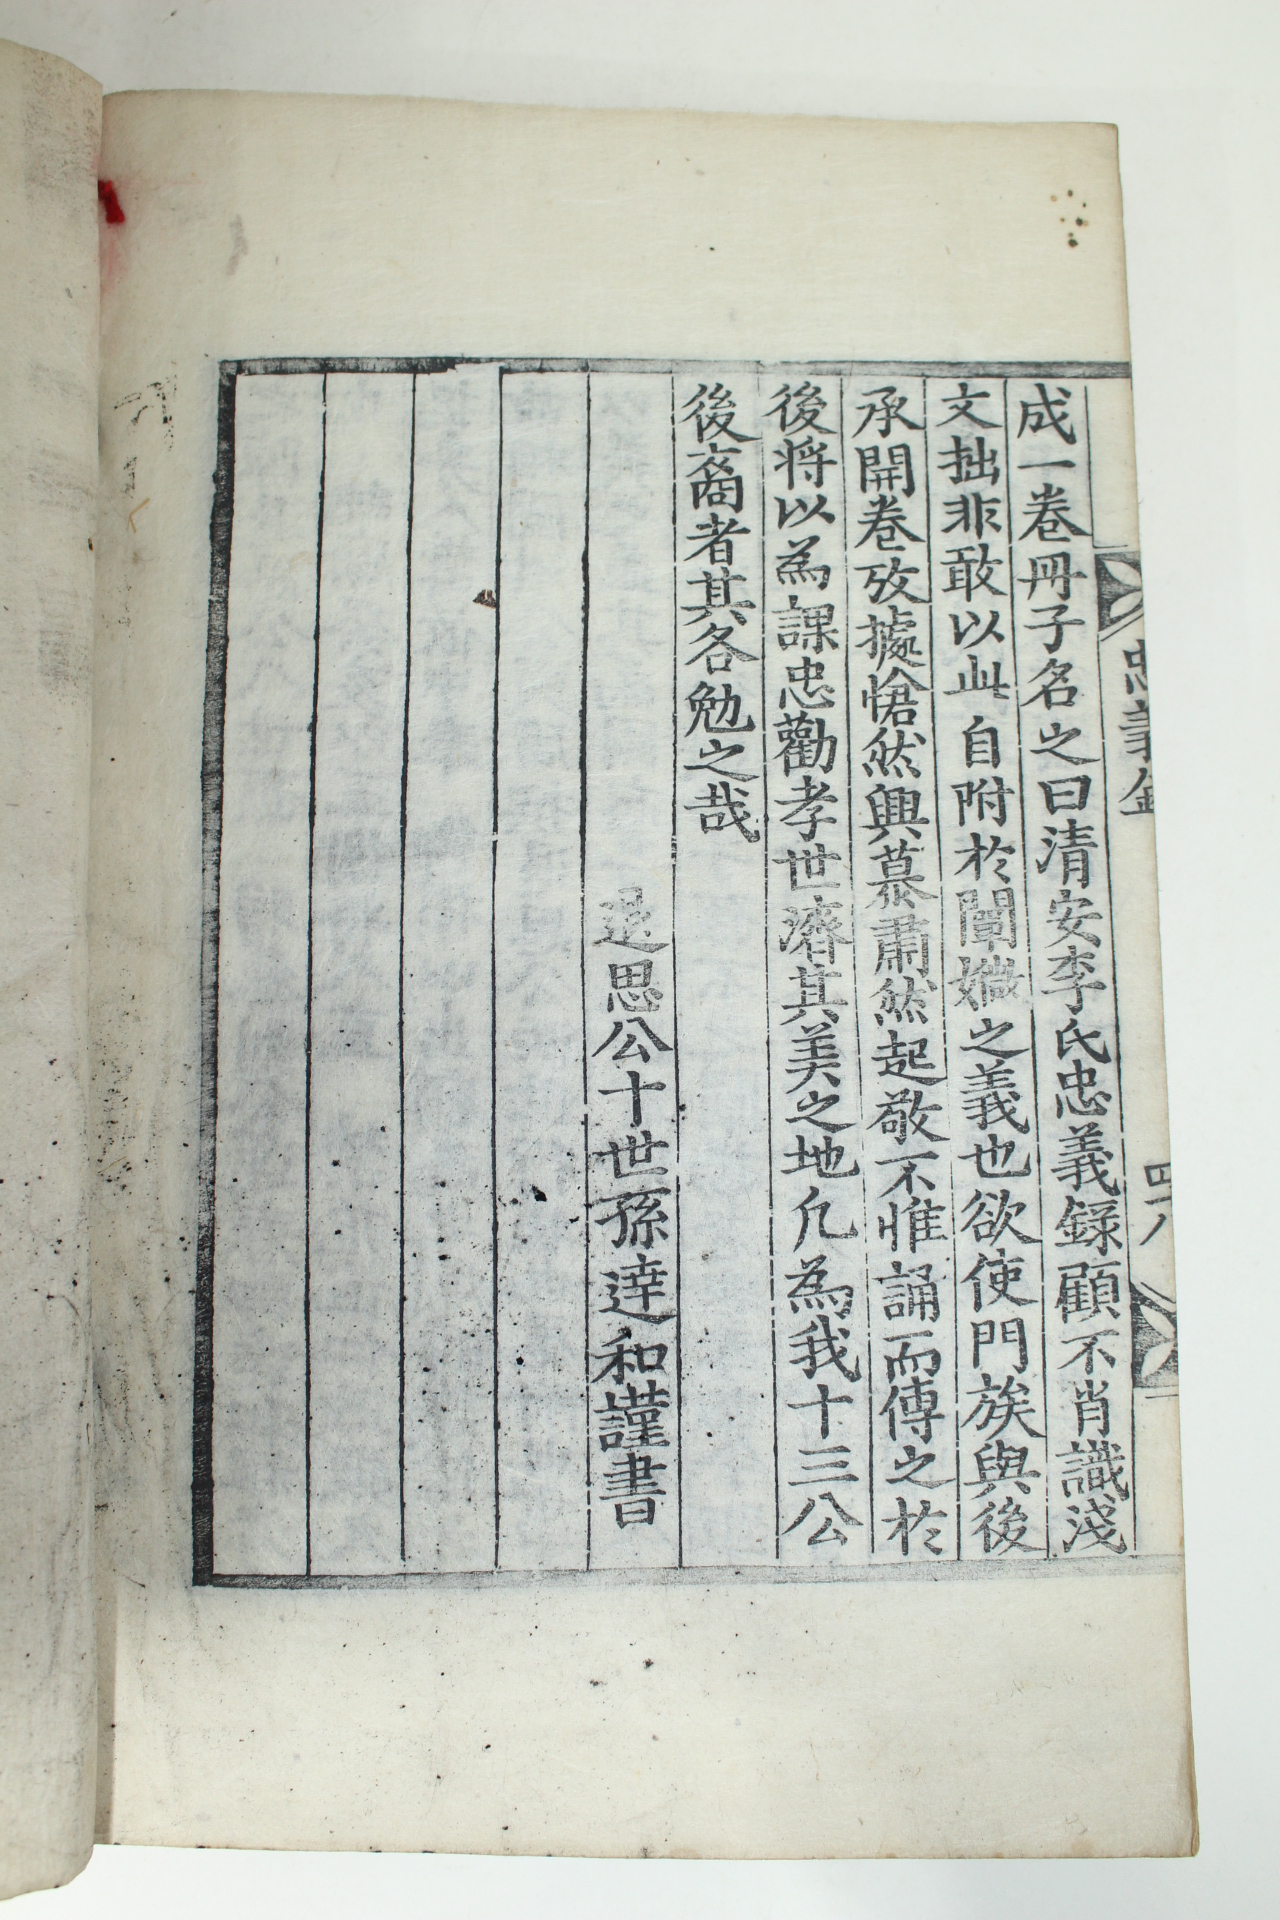 忠義錄
四八
成一卷冊子名之曰清安李氏忠義錄顧不肖識淺
文拙非敢以此自附於闡媺之義也欲使門族與後
承開卷攷據愴然興慕肅然起敬不惟誦而傳之於
後將以為課忠勸孝世濟其美之地凡為我十三公
後裔者其各勉之哉
退思公十世孫達和謹書